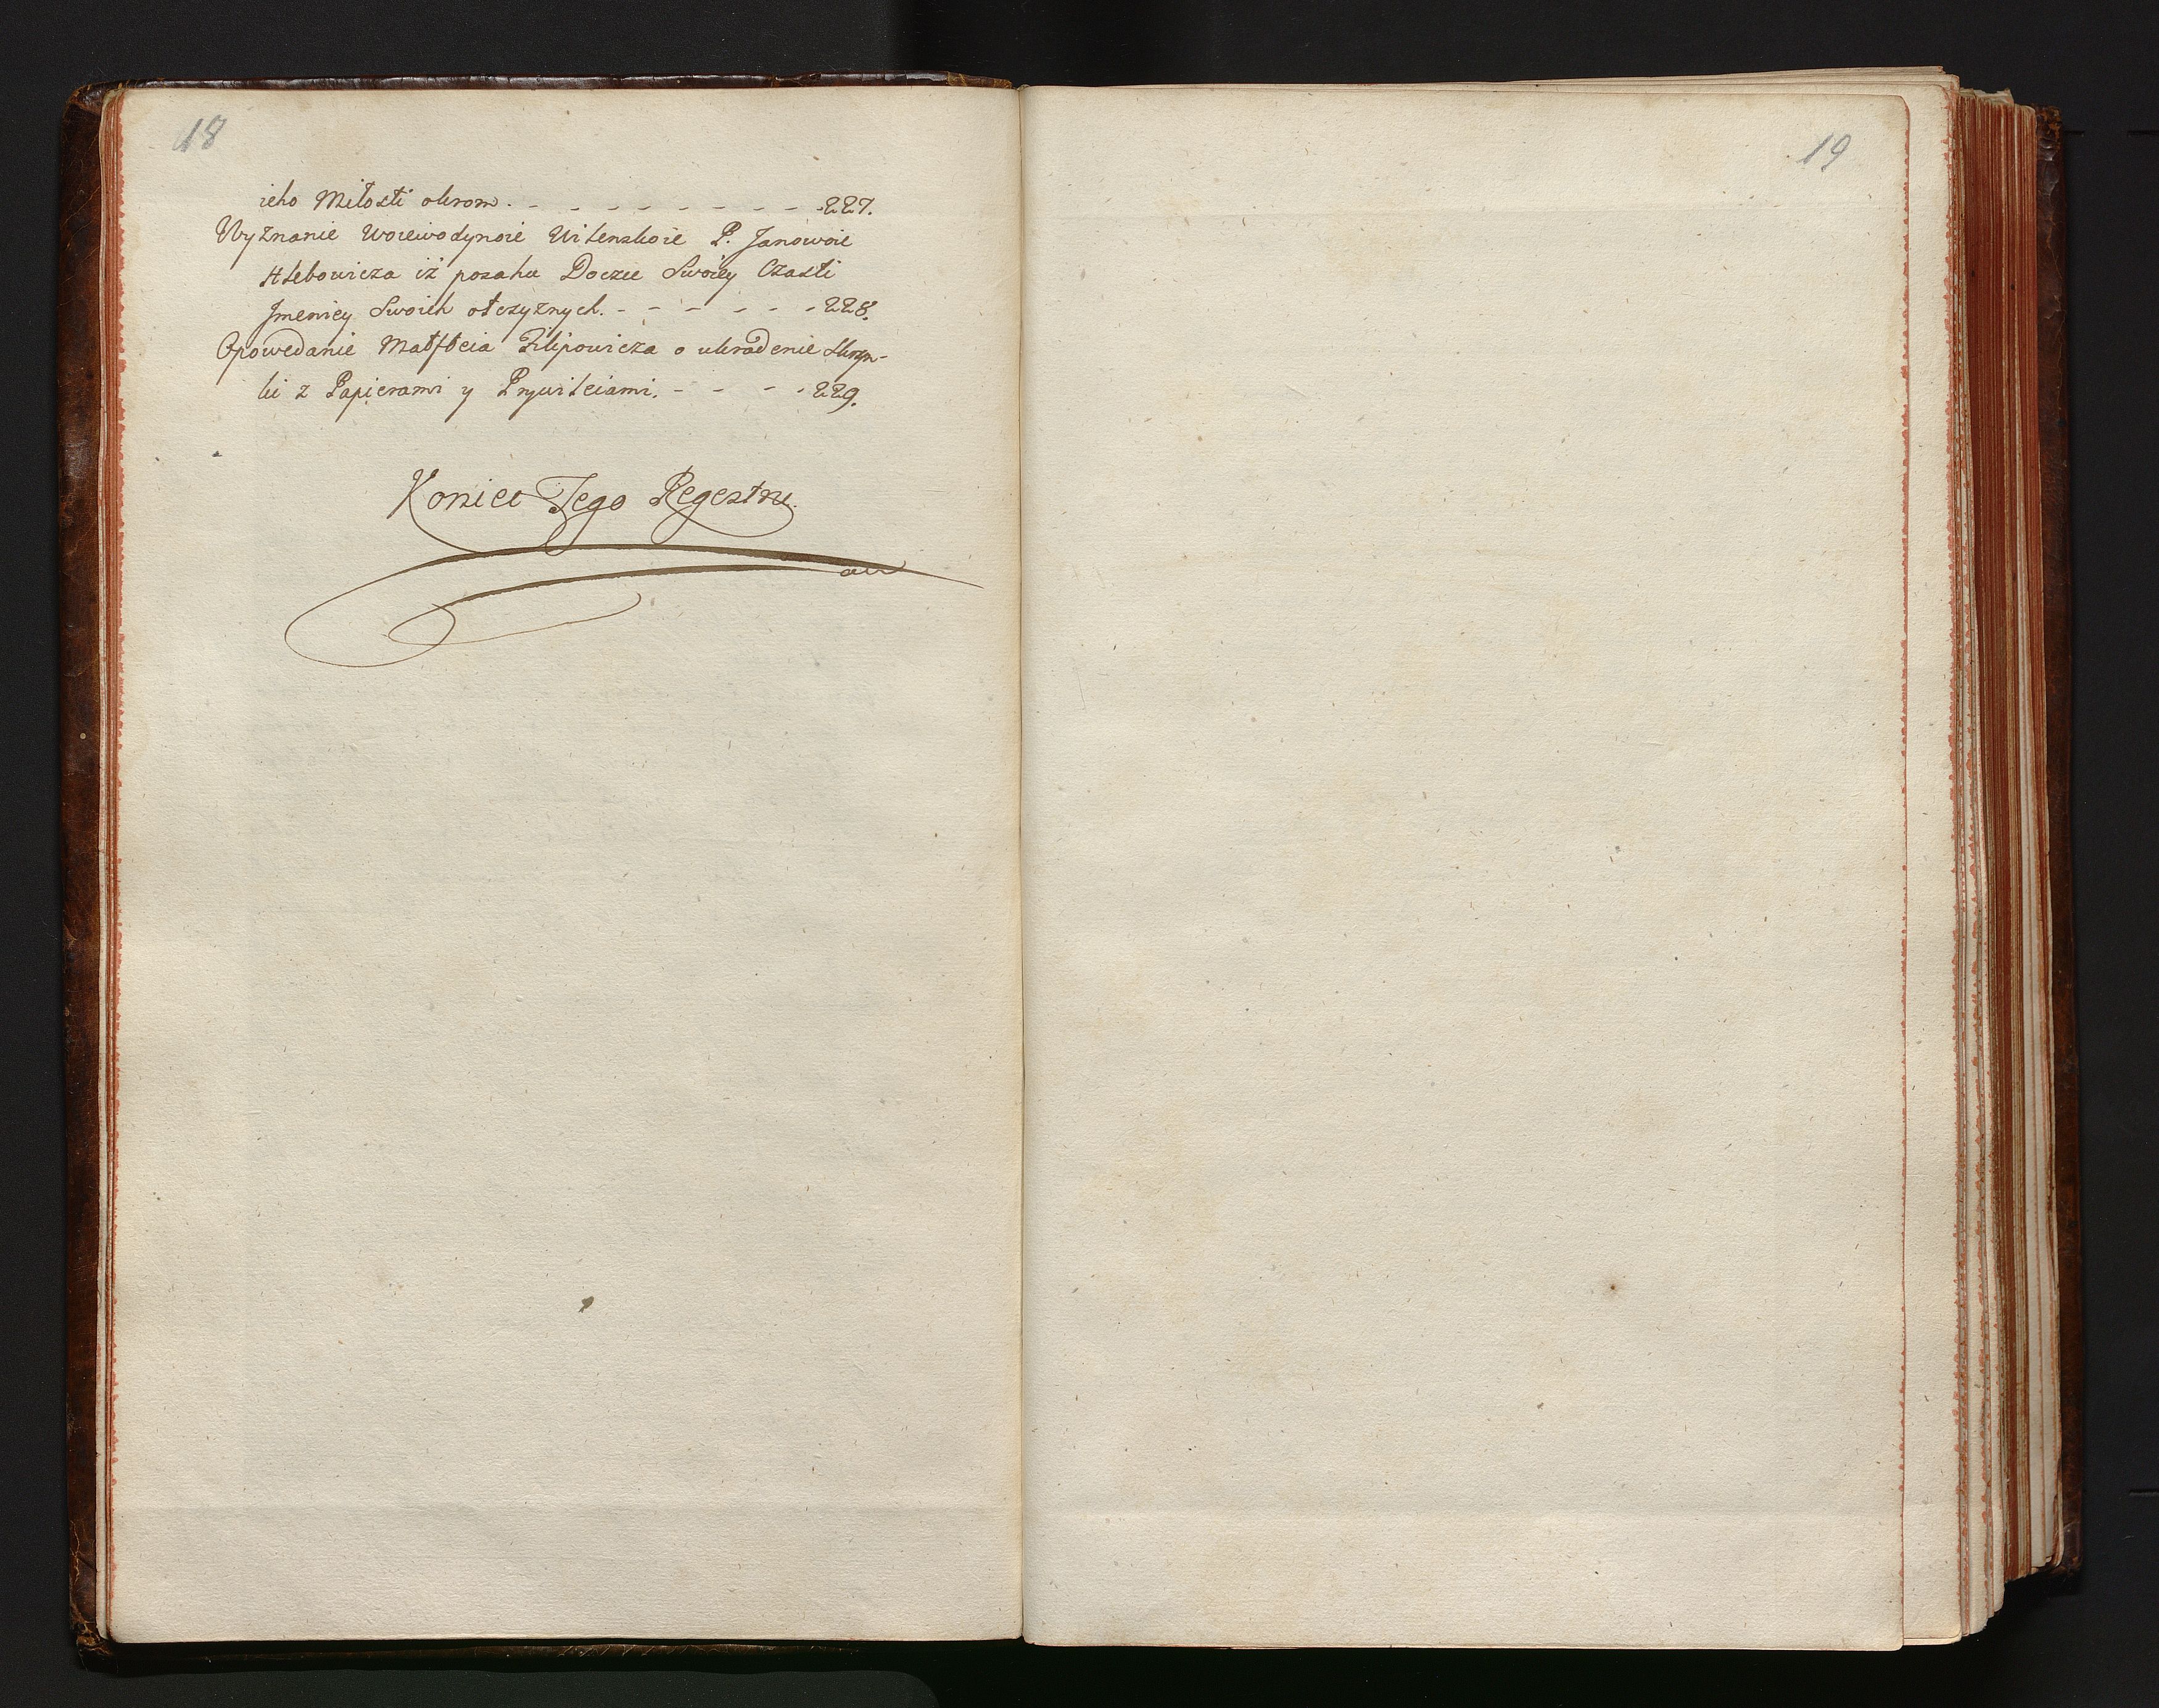 18
ieho Miłosti okrom. - - - - - - - - - - 227.
Wyznanie Woiewodynoie Witenskoie P. Janowoie
Hlebowicza iż posahu Doczce Swoiey Czasti
Jmeniey Swoich otczyznych. - - - - - - 228.
Opowedanie Matfteia Filipowicza o ukradenie Skrzyn-
ki z Papierami y Prywileiami. - - - - 229.
Koniec Tego Regestru.
19